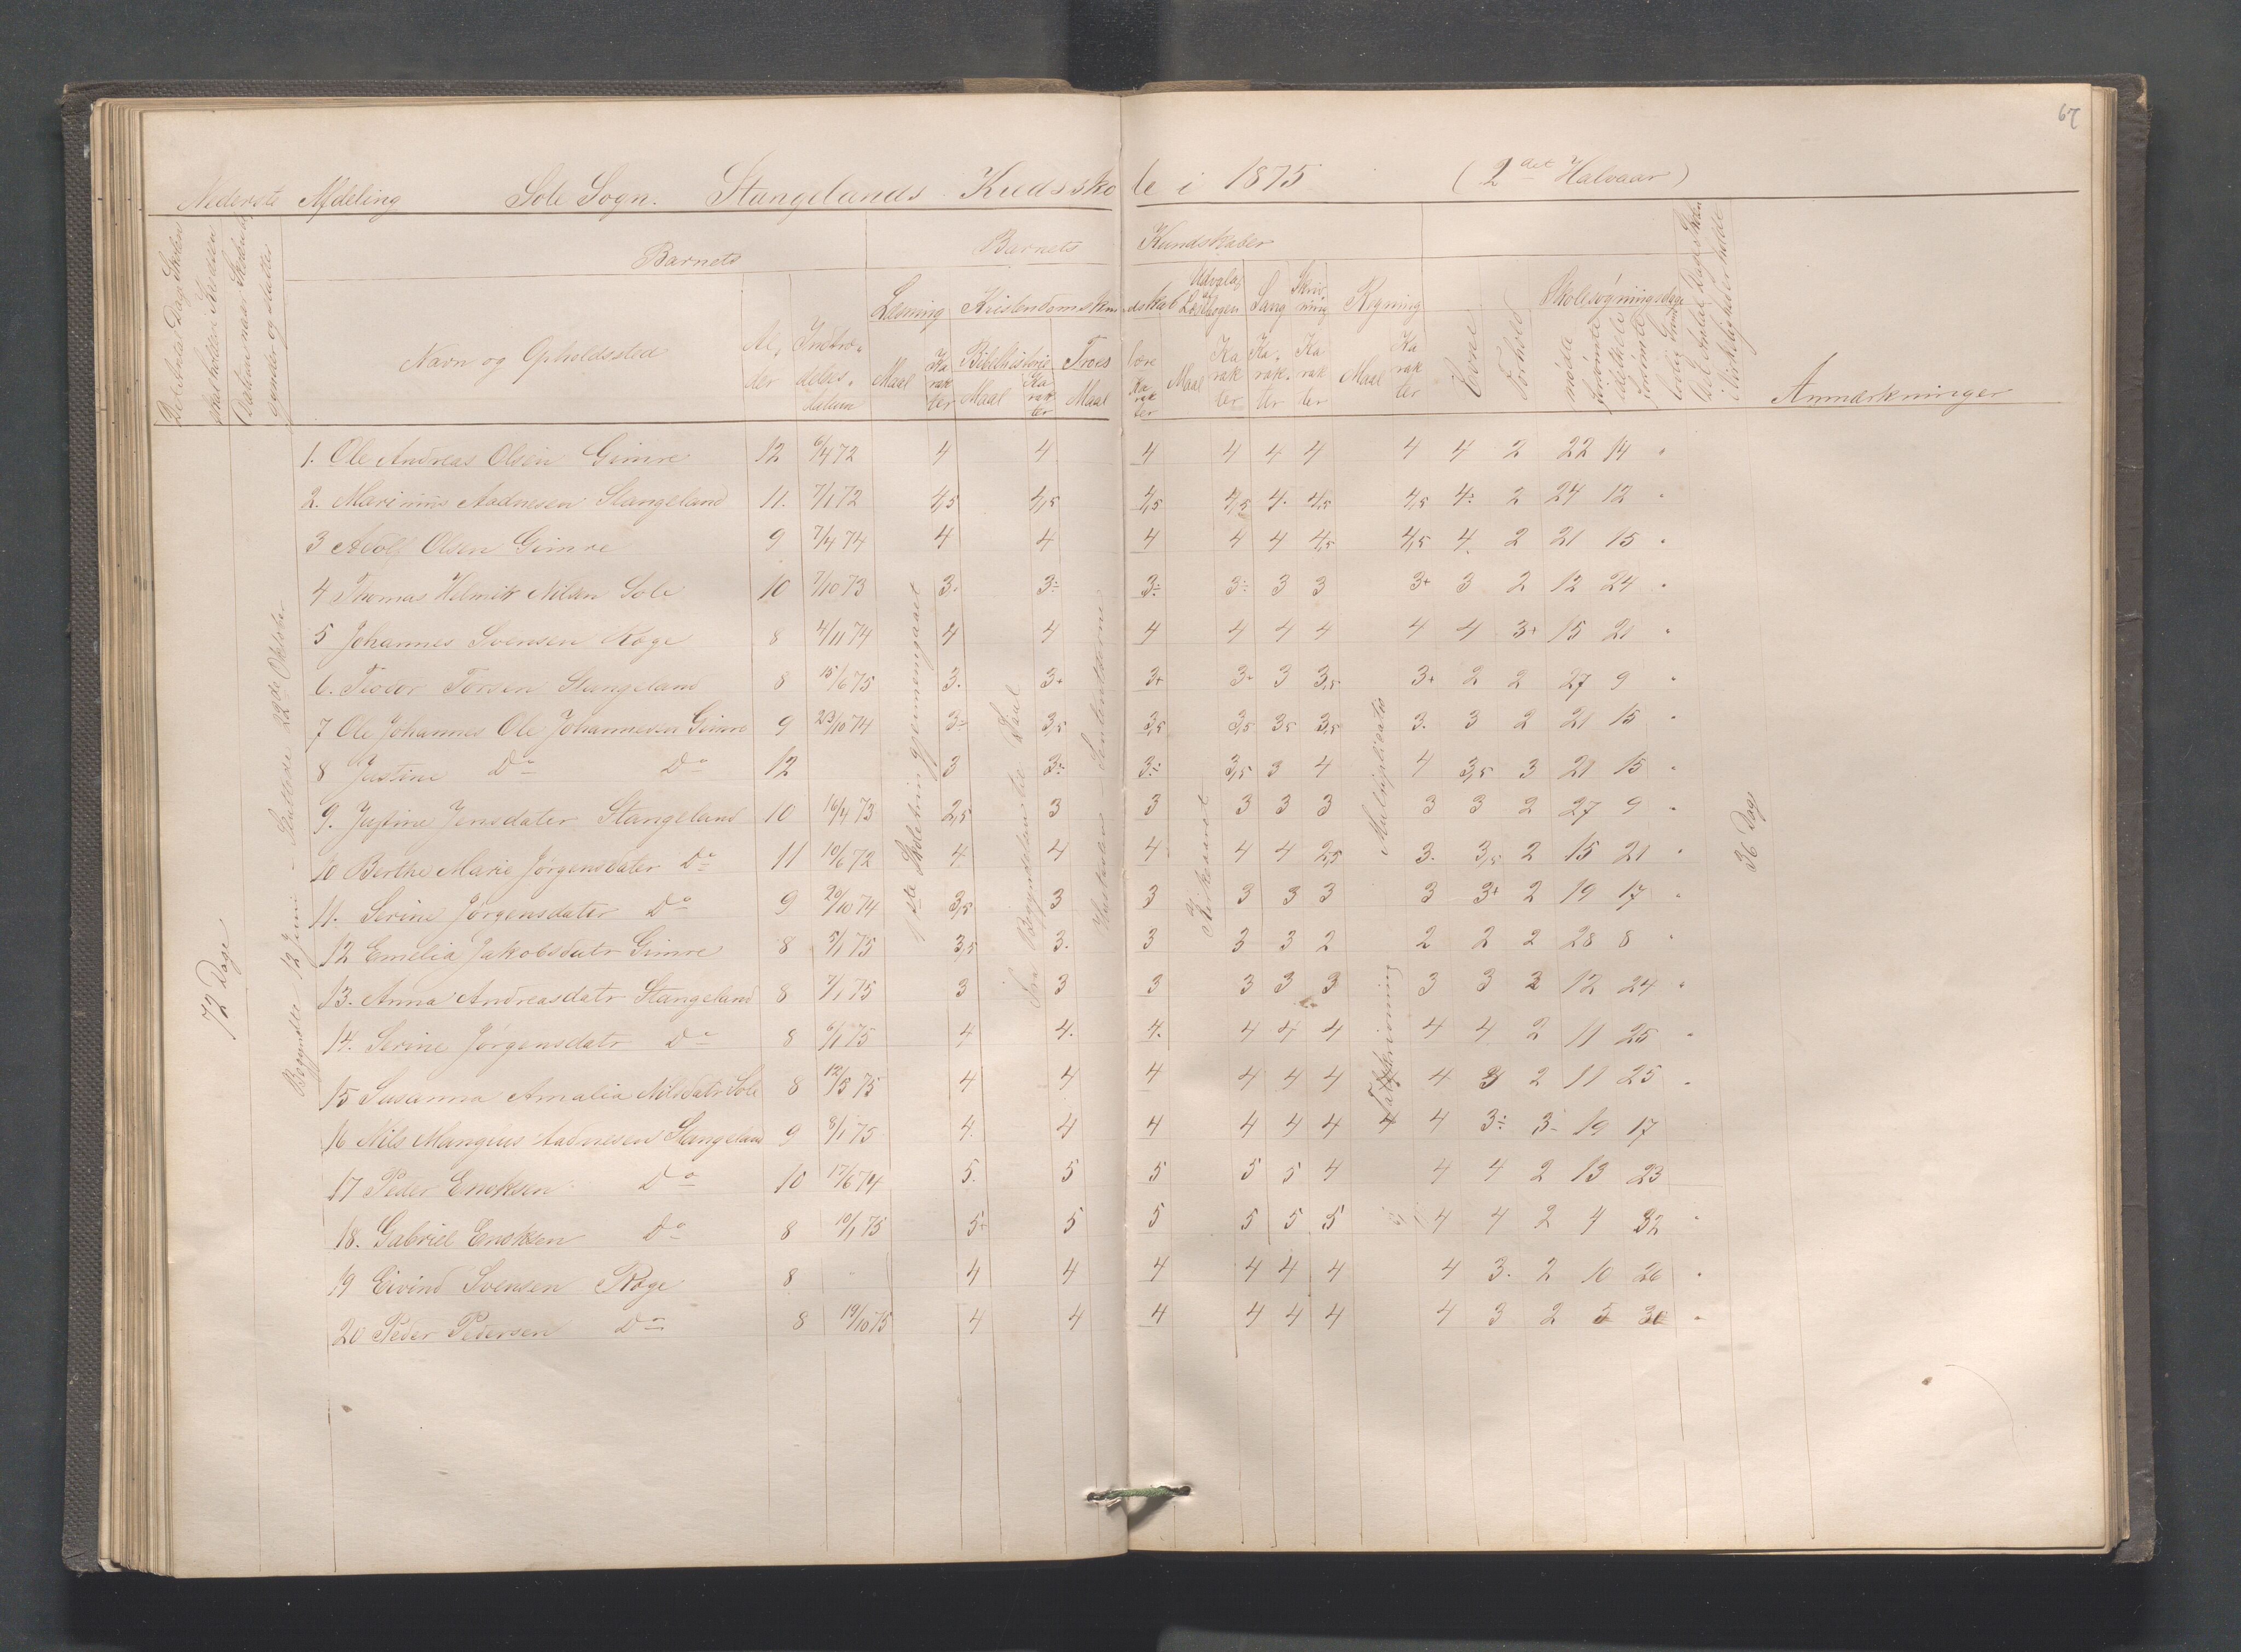 67
Nederste Afdeling Sole Sogn. Stangelands Kredsskole i 1875 (2det Halvaar)
Det Antal Dage Skolen skal holdes i Kredsen
Datum naar Skolen begynder og slutter
Barnets
Navn og Opholdssted
Alder
Indtrædelsesdatum
Barnets Kundskaber
Læsning Kristendomskundskab Udvalg af Læsebogen Sang Skrivning Regning
Bibelhistorie Troeslære
Maal Karakter Maal Karakter Maal Karakter Maal Karakter Karakter Karakter Maal Karakter
Evne
Forhold
Skolesøgningsdage
mødte
forsømte
Det Antal Dage Skolen i Virkeligheden holdt
Anmærkninger
72 Dage
Begyndte 12 Juni - Sluttede 22de Oktober
1ste Skoletrin gjennemgaaet
Fra Begyndelsen til Saul
Hustavlen - Senktelterne
Multiplikation
Talskrivning
36 Dage
1. Ole Andreas Olsen Gimre 12 6/4 72 4 4 4 4 4 4 4 4 2 22 14 "
2. Marinius Aadnesen Stangeland 11. 7/1 72 4,5 4,5 4,5 4,5 4. 4,5 4,5 4: 2 24 12 "
3 Adolf Olsen Gimre 9 7/4 74 4 4 4 4 4 4,5 4,5 4. 2 21 15 "
4 Thomas Helmik Nilsen Sole 10 7/10 73 3. 3÷ 3÷ 3÷ 3 3 3+ 3 2 12 24 "
5 Johannes Svensen Rage 8 4/11 74 4 4 4 4 4 4 4 4 3+ 15 21 "
6. Teodor Torsen Stangeland 8 15/6 75 3. 3+ 3+ 3+ 3 3,5 3+ 2 2 27 9 "
7 Ole Johannes Ole Johannesen Gimre 9 23/10 74 3÷ 3,5 3,5 3,5 3,5 3,5 3. 3 2 21 15 "
8 Justine Do Do 12 3 3÷ 3÷ 3,5 3 4 4 3,5 3 21 15 "
9. Justine Jensdater Stangeland 10 16/4 73 2,5 3 3 3 3 3 3 3 2 27 9 "
10 Berthe Marie Jørgensdater Do 11 10/6 72 4 4 4 4 4 2,5 3. 3,5 2 15 21 "
11. Serine Jørgensdater Do 9 20/10 74 3,5 3 3 3 3 3 3 3+ 2 19 17 "
12 Emelia Jakobsdatr Gimre 8 5/1 75 3,5 3. 3 3 3 2 2 2 2 28 8 "
13. Anna Andreasdatr Stangeland 8 7/1 75 3 3 3 3 3 3 3 3 2 12 24 "
14. Serine Jørgensdatr Do 8 6/1 75 4 4. 4. 4 4 4 4 4 2 11 25 "
15 Susanna Amalia Nilsdatr Sole 8 12/5 75 4 4 4 4 4 4 4 3 2 11 25 "
16 Nils Mangnus Aadnesen Stangeland 9 8/1 75 4. 4 4 4 4 4 4 4 3÷ 3- 19 17
17 Peder Enoksen Do 10 17/6 74 5. 5 5 5 5 4 4 4 2 13 23
18. Gabriel Enoksen Do 8 10/1 75 5+ 5 5 5 5 5 4 4 2 4 32 "
19 Eivind Svensen Rage 8 4 4 4 4 4 4 4 3. 2 10 26 "
20 Peder Pedersen Do 8 19/10 75 4 4 4 4 4 4 4 3 2 5 30 "